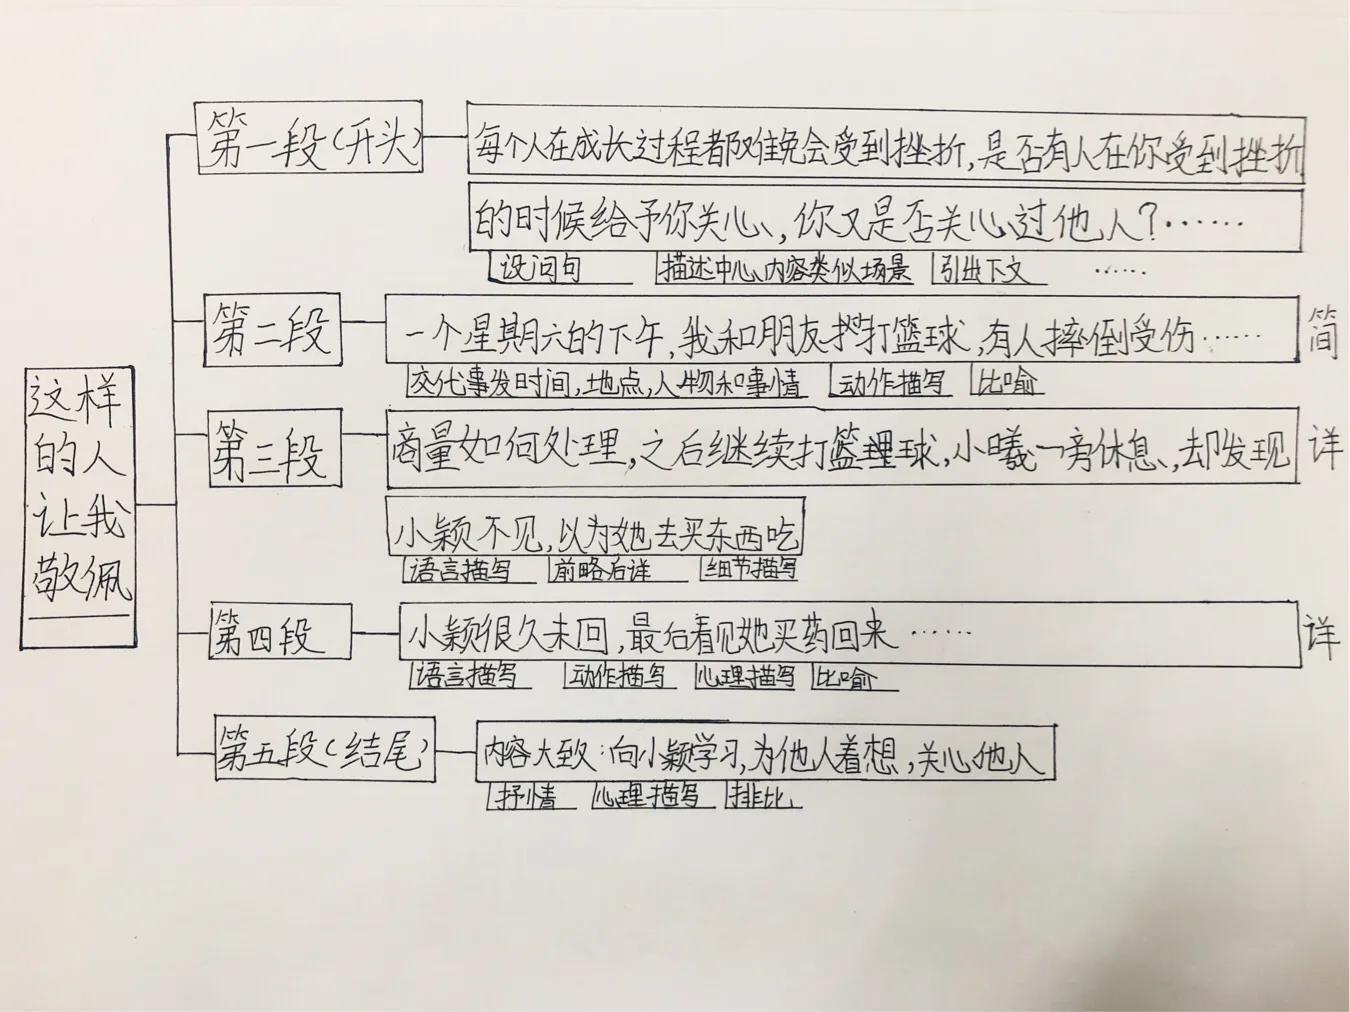 第一段(开头)
每个人在成长过程都难免会受到挫折,是否有人在你受到挫折
的时候给予你关心,你又是否关心过他人?……
设问句 描述中心内容类似场景 引出下文 ……
第二段
一个星期六的下午,我和朋友打篮球,有人摔倒受伤…… 简
交代事发时间,地点,人物和事情 动作描写 比喻
第三段
商量如何处理,之后继续打篮球,小曦一旁休息,却发现 详
小颖不见,以为她去买东西吃
语言描写 前略后详 细节描写
这样
的人
让我
敬佩
第四段
小颖很久未回,最后看见她买药回来…… 详
语言描写 动作描写 心理描写 比喻
第五段(结尾)
内容大致:向小颖学习,为他人着想,关心他人
抒情 心理描写 排比